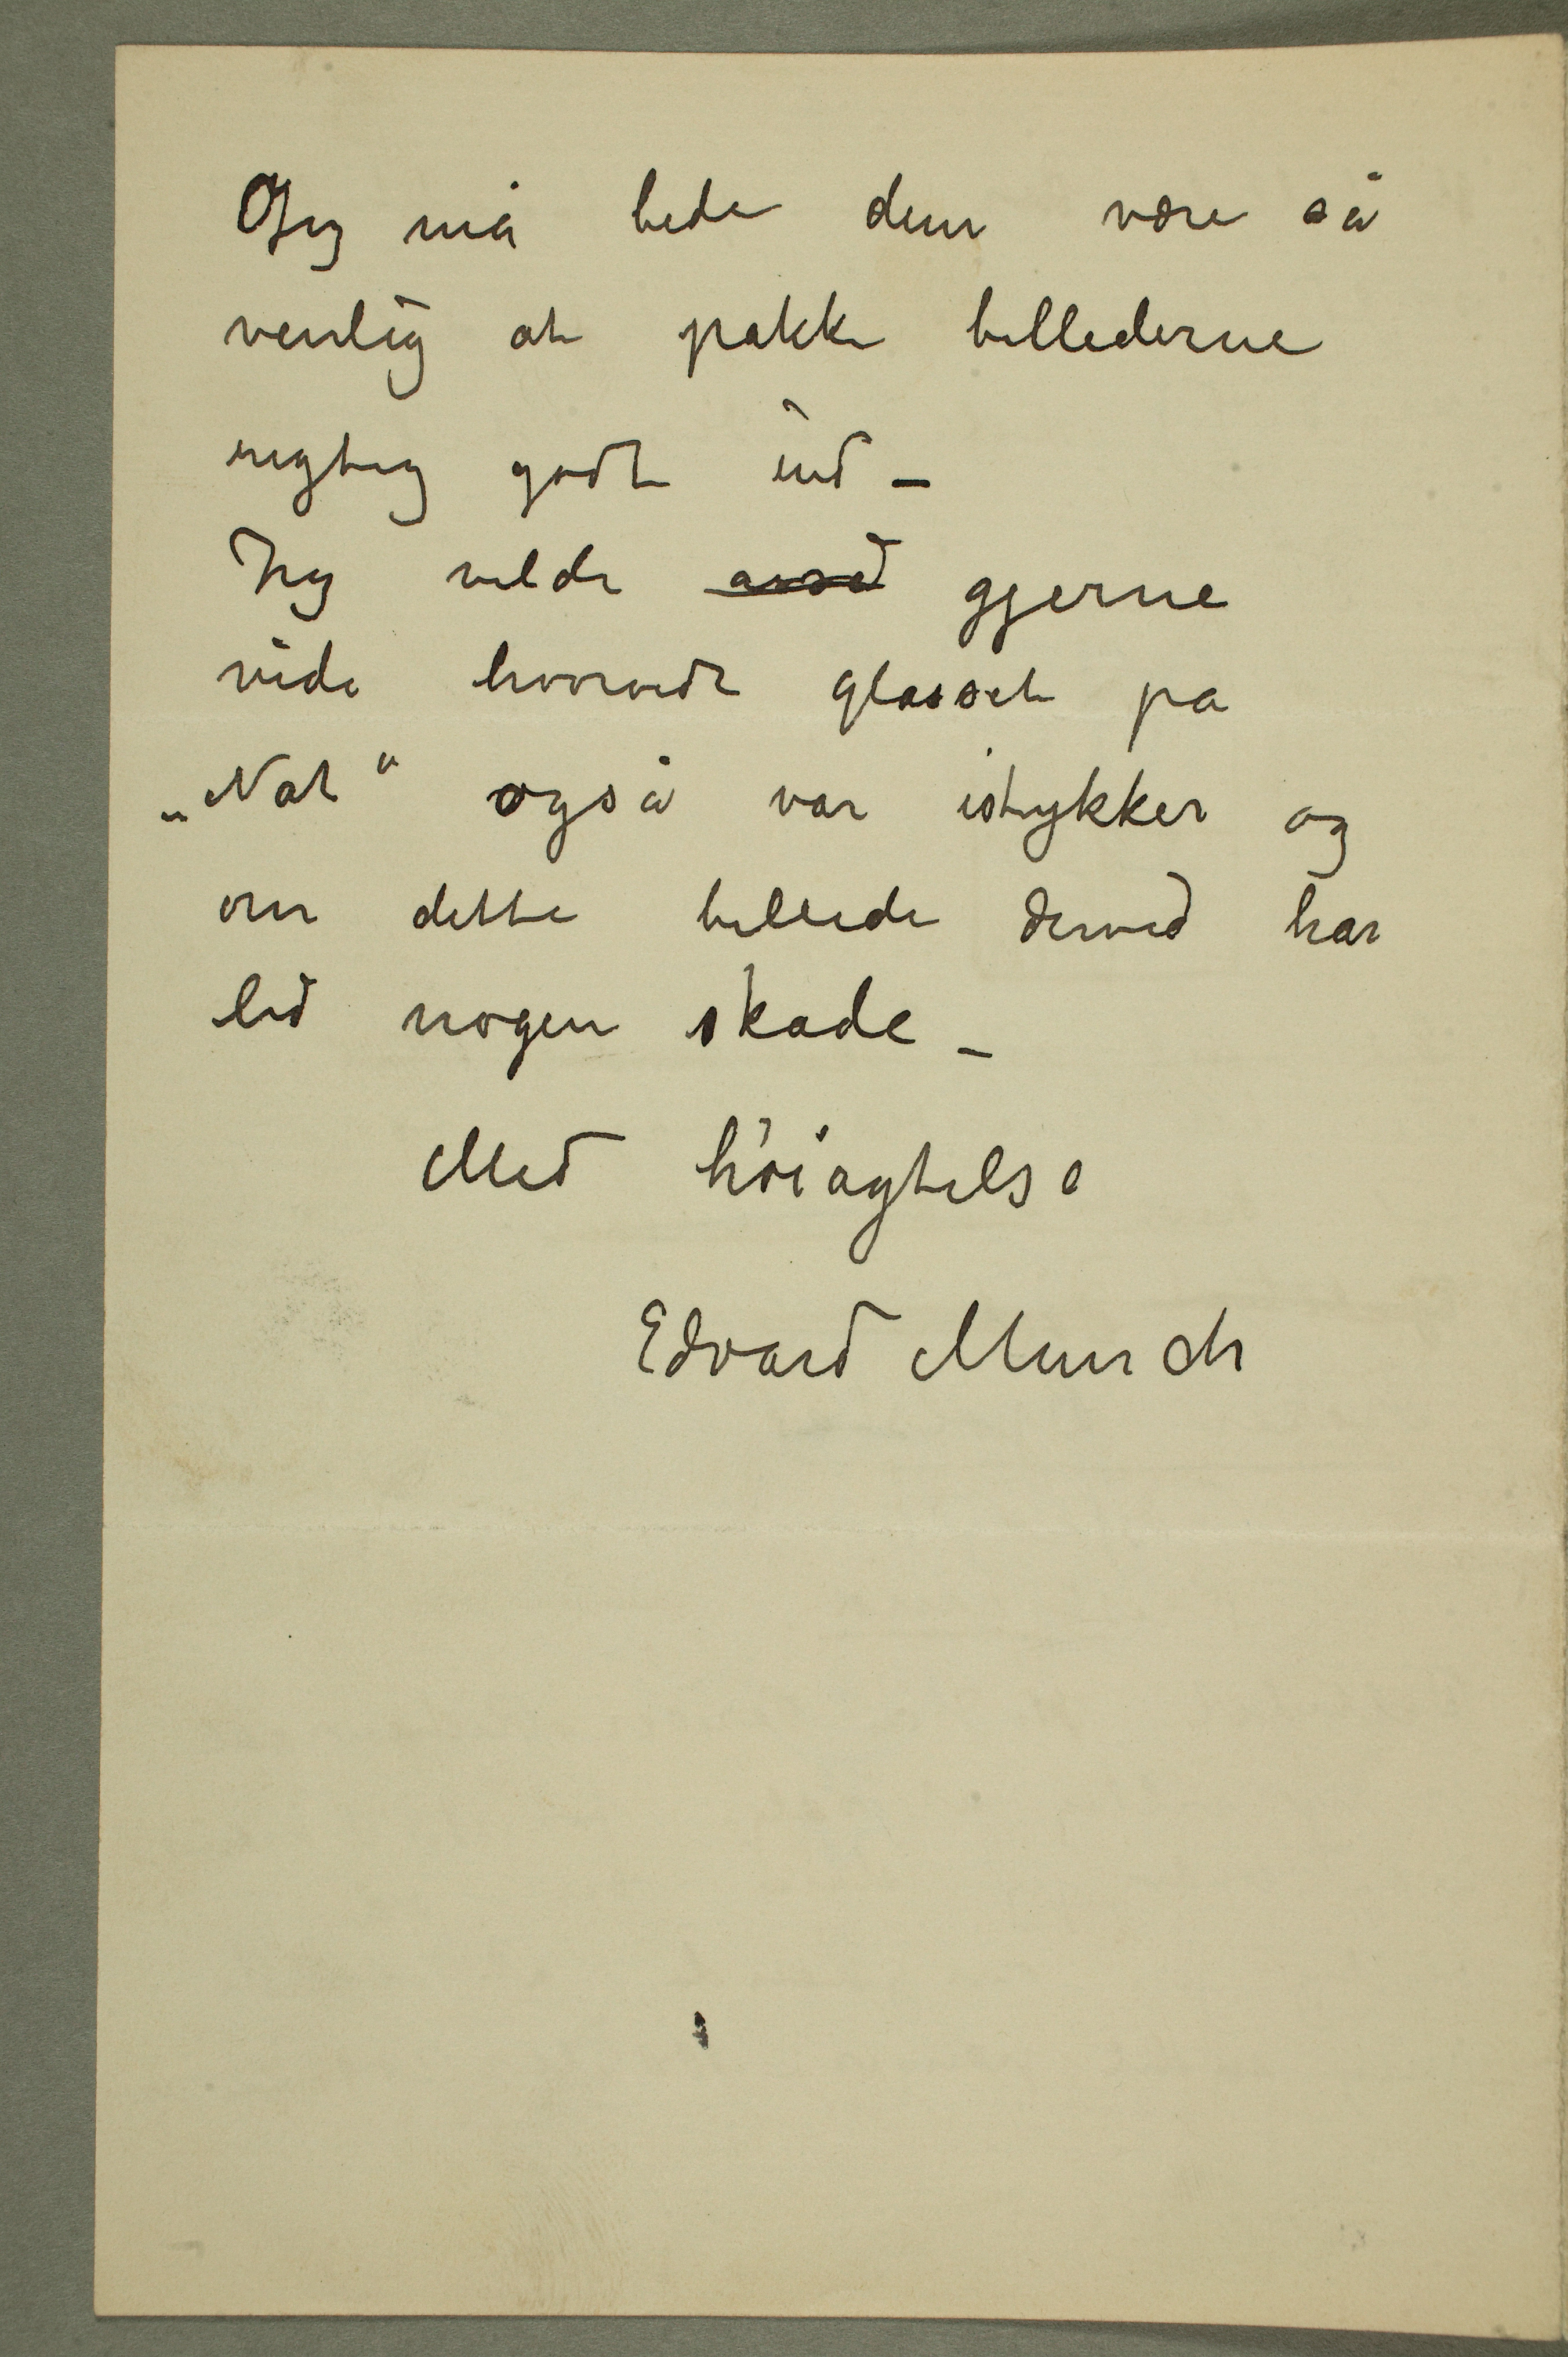 Jeg må bede dem være så
venlig at pakke billederne
rigtig godt ind –
Jeg vilde gjerne
vide hvorvidt glasset på
„Nat“ også var istykker og
om dette billede derved har
lid nogen skade –
Med höiagtelse
Edvard Munch